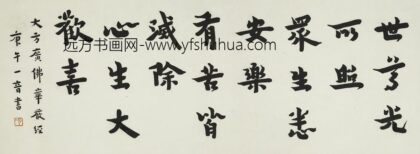 世尊光
所照
眾生悉
安樂
有苦皆
滅除
心生大
歡喜
大方廣佛華嚴經
庚午一音書
远方书画网-www.yfshuhua.com